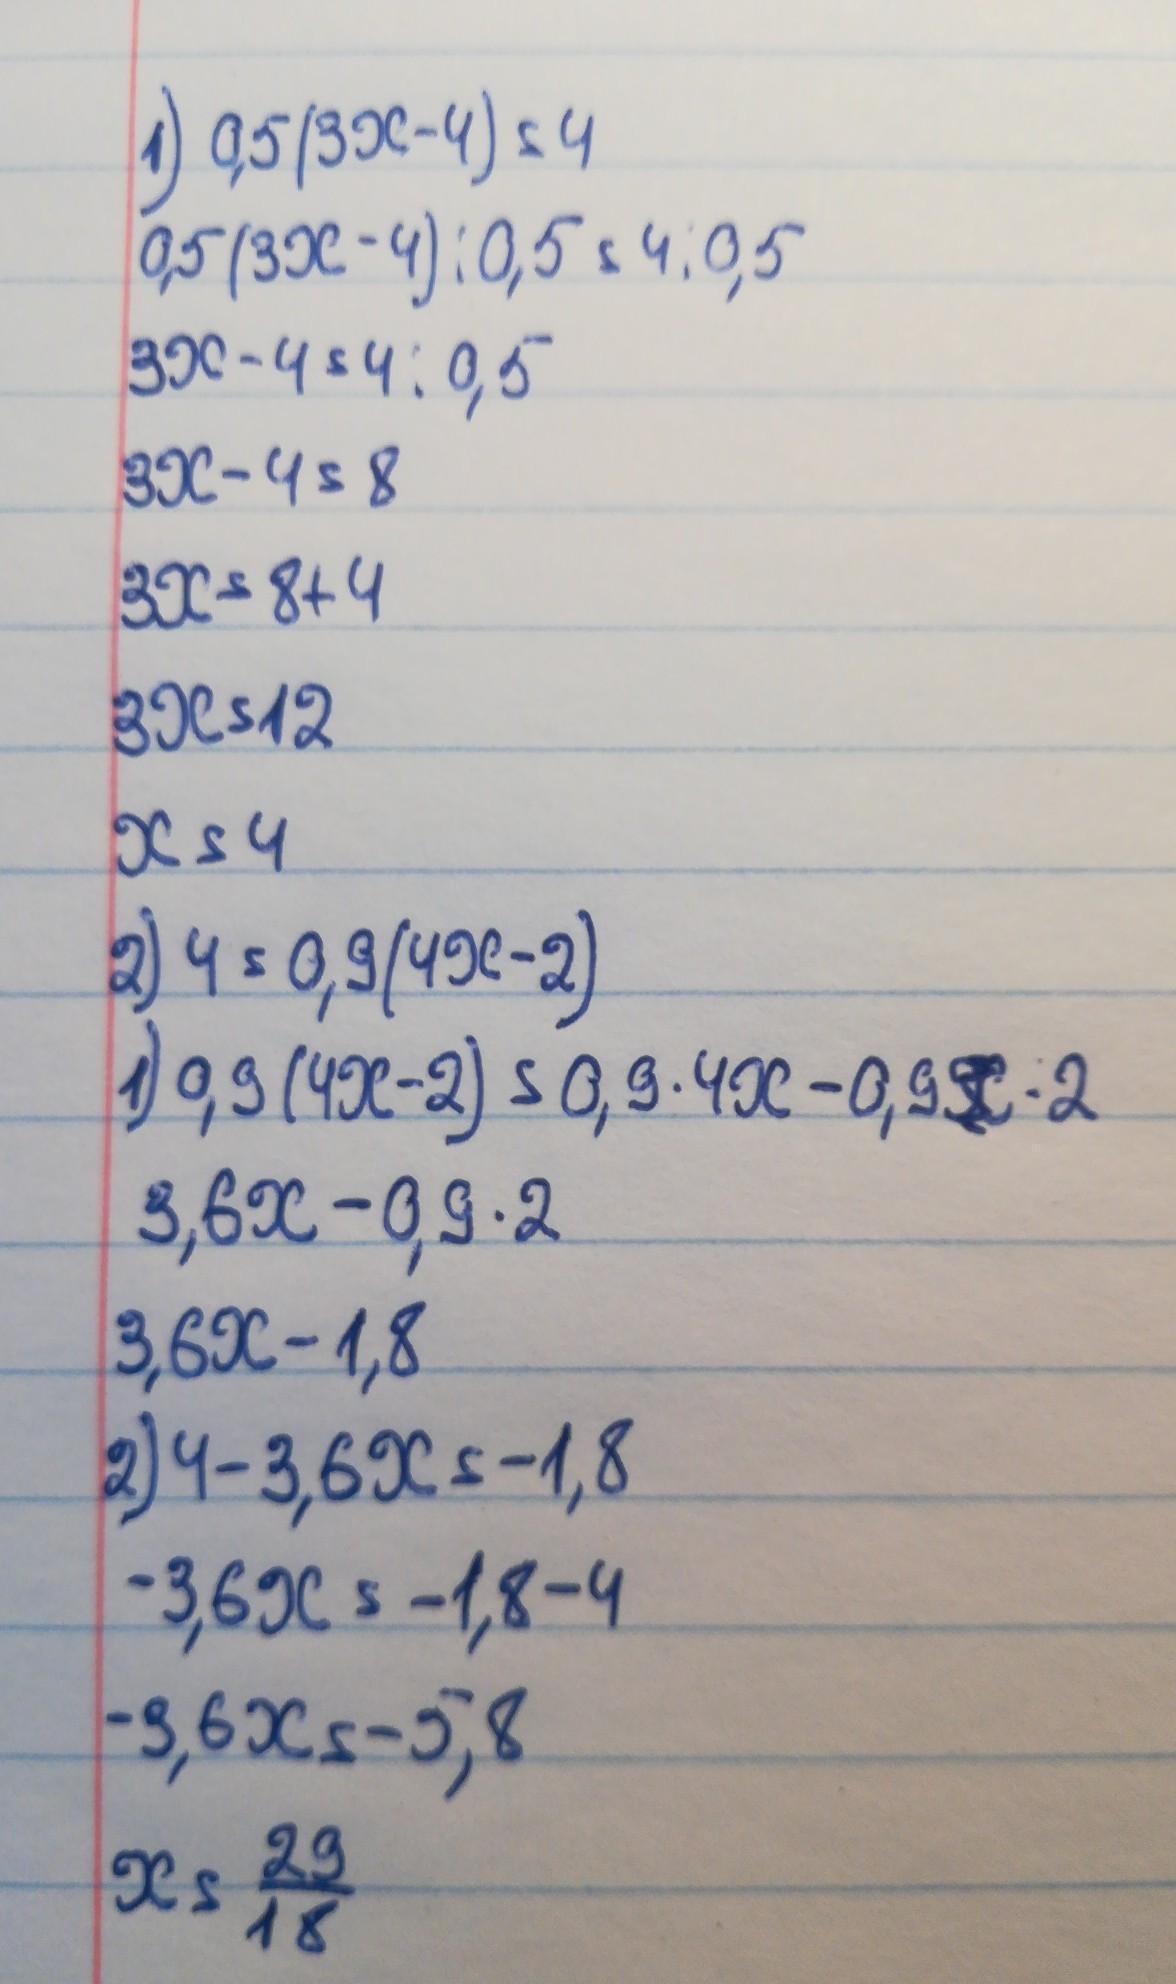 1) 0,5(3x-4)=4
0,5(3x-4):0,5=4:0,5
3x-4=4:0,5
3x-4=8
3x=8+4
3x=12
x=4
2) 4=0,9(4x-2)
1) 0,9(4x-2)=0,9·4x-0,9·2
3,6x-0,9·2
3,6x-1,8
2) 4-3,6x=-1,8
-3,6x=-1,8-4
-3,6x=-5,8
x=29/18